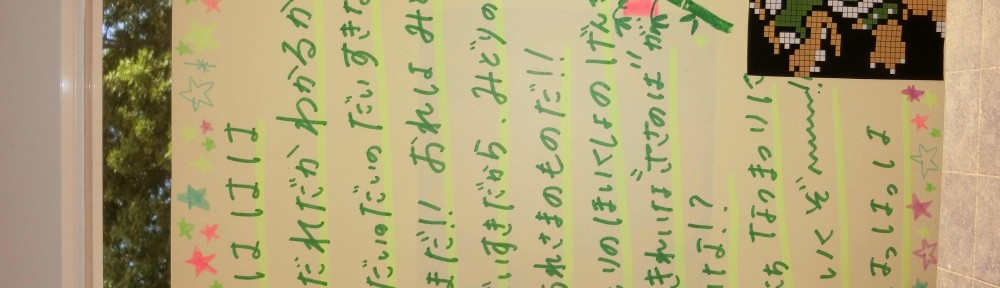 はははは
だれだか わかるか
だいの だいの だいすきな
まだ!! おれは みど
いすきだから、みどりの
れさまのものだ!!
りのほいくしょの げんき
きれいな ささのは が
な!?
ち なつまつりに
いくぞ〜〜〜!
はっはっは